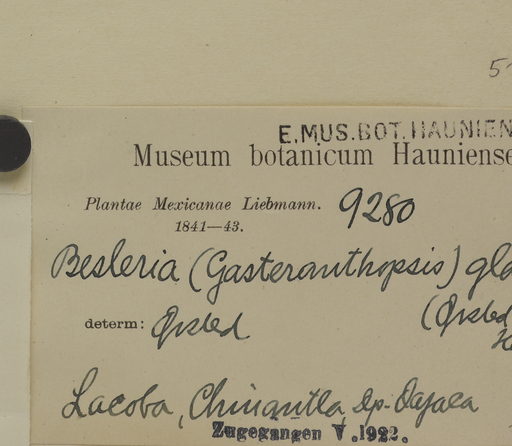 E.MUS.BOT.HAUNIEN
Museum botanicum Hauniense
Plantae Mexicanae Liebmann. 9280
1841—43.
Besleria (Gasteranthopsis) gla
determ: Ørsted (Ørsted
Lacoba, Chinantla, Dp. Oajaca
Zugegangen V.1922.